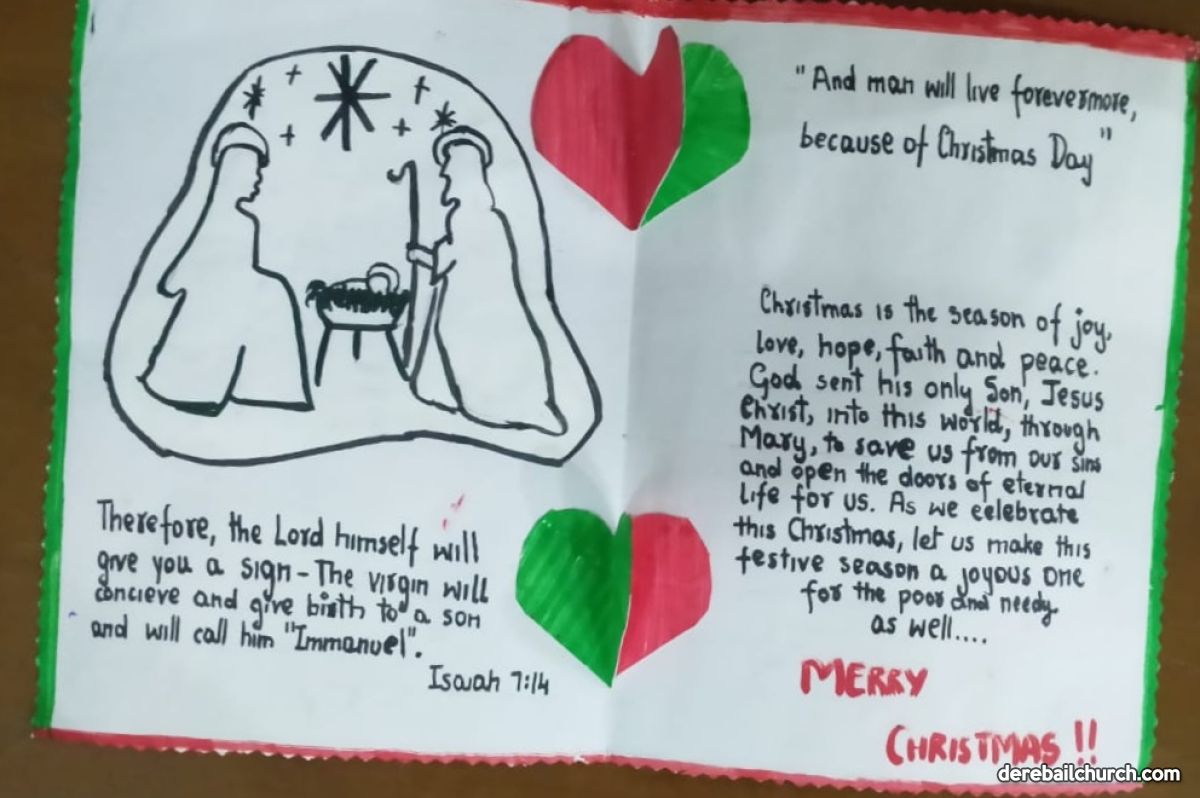 Therefore, the Lord himself will
give you a sign - The virgin will
concieve and give birth to a son
and will call him "Immanuel".
Isaiah 7:14
"And man will live forevermore,
because of Christmas Day"
Christmas is the season of joy,
love, hope, faith and peace.
God sent his only Son, Jesus
Christ, into this world, through
Mary, to save us from our sins
and open the doors of eternal
life for us. As we celebrate
this Christmas, let us make this
festive season a joyous one
for the poor and needy
as well....
MERRY
CHRISTMAS !!
derebailchurch.com